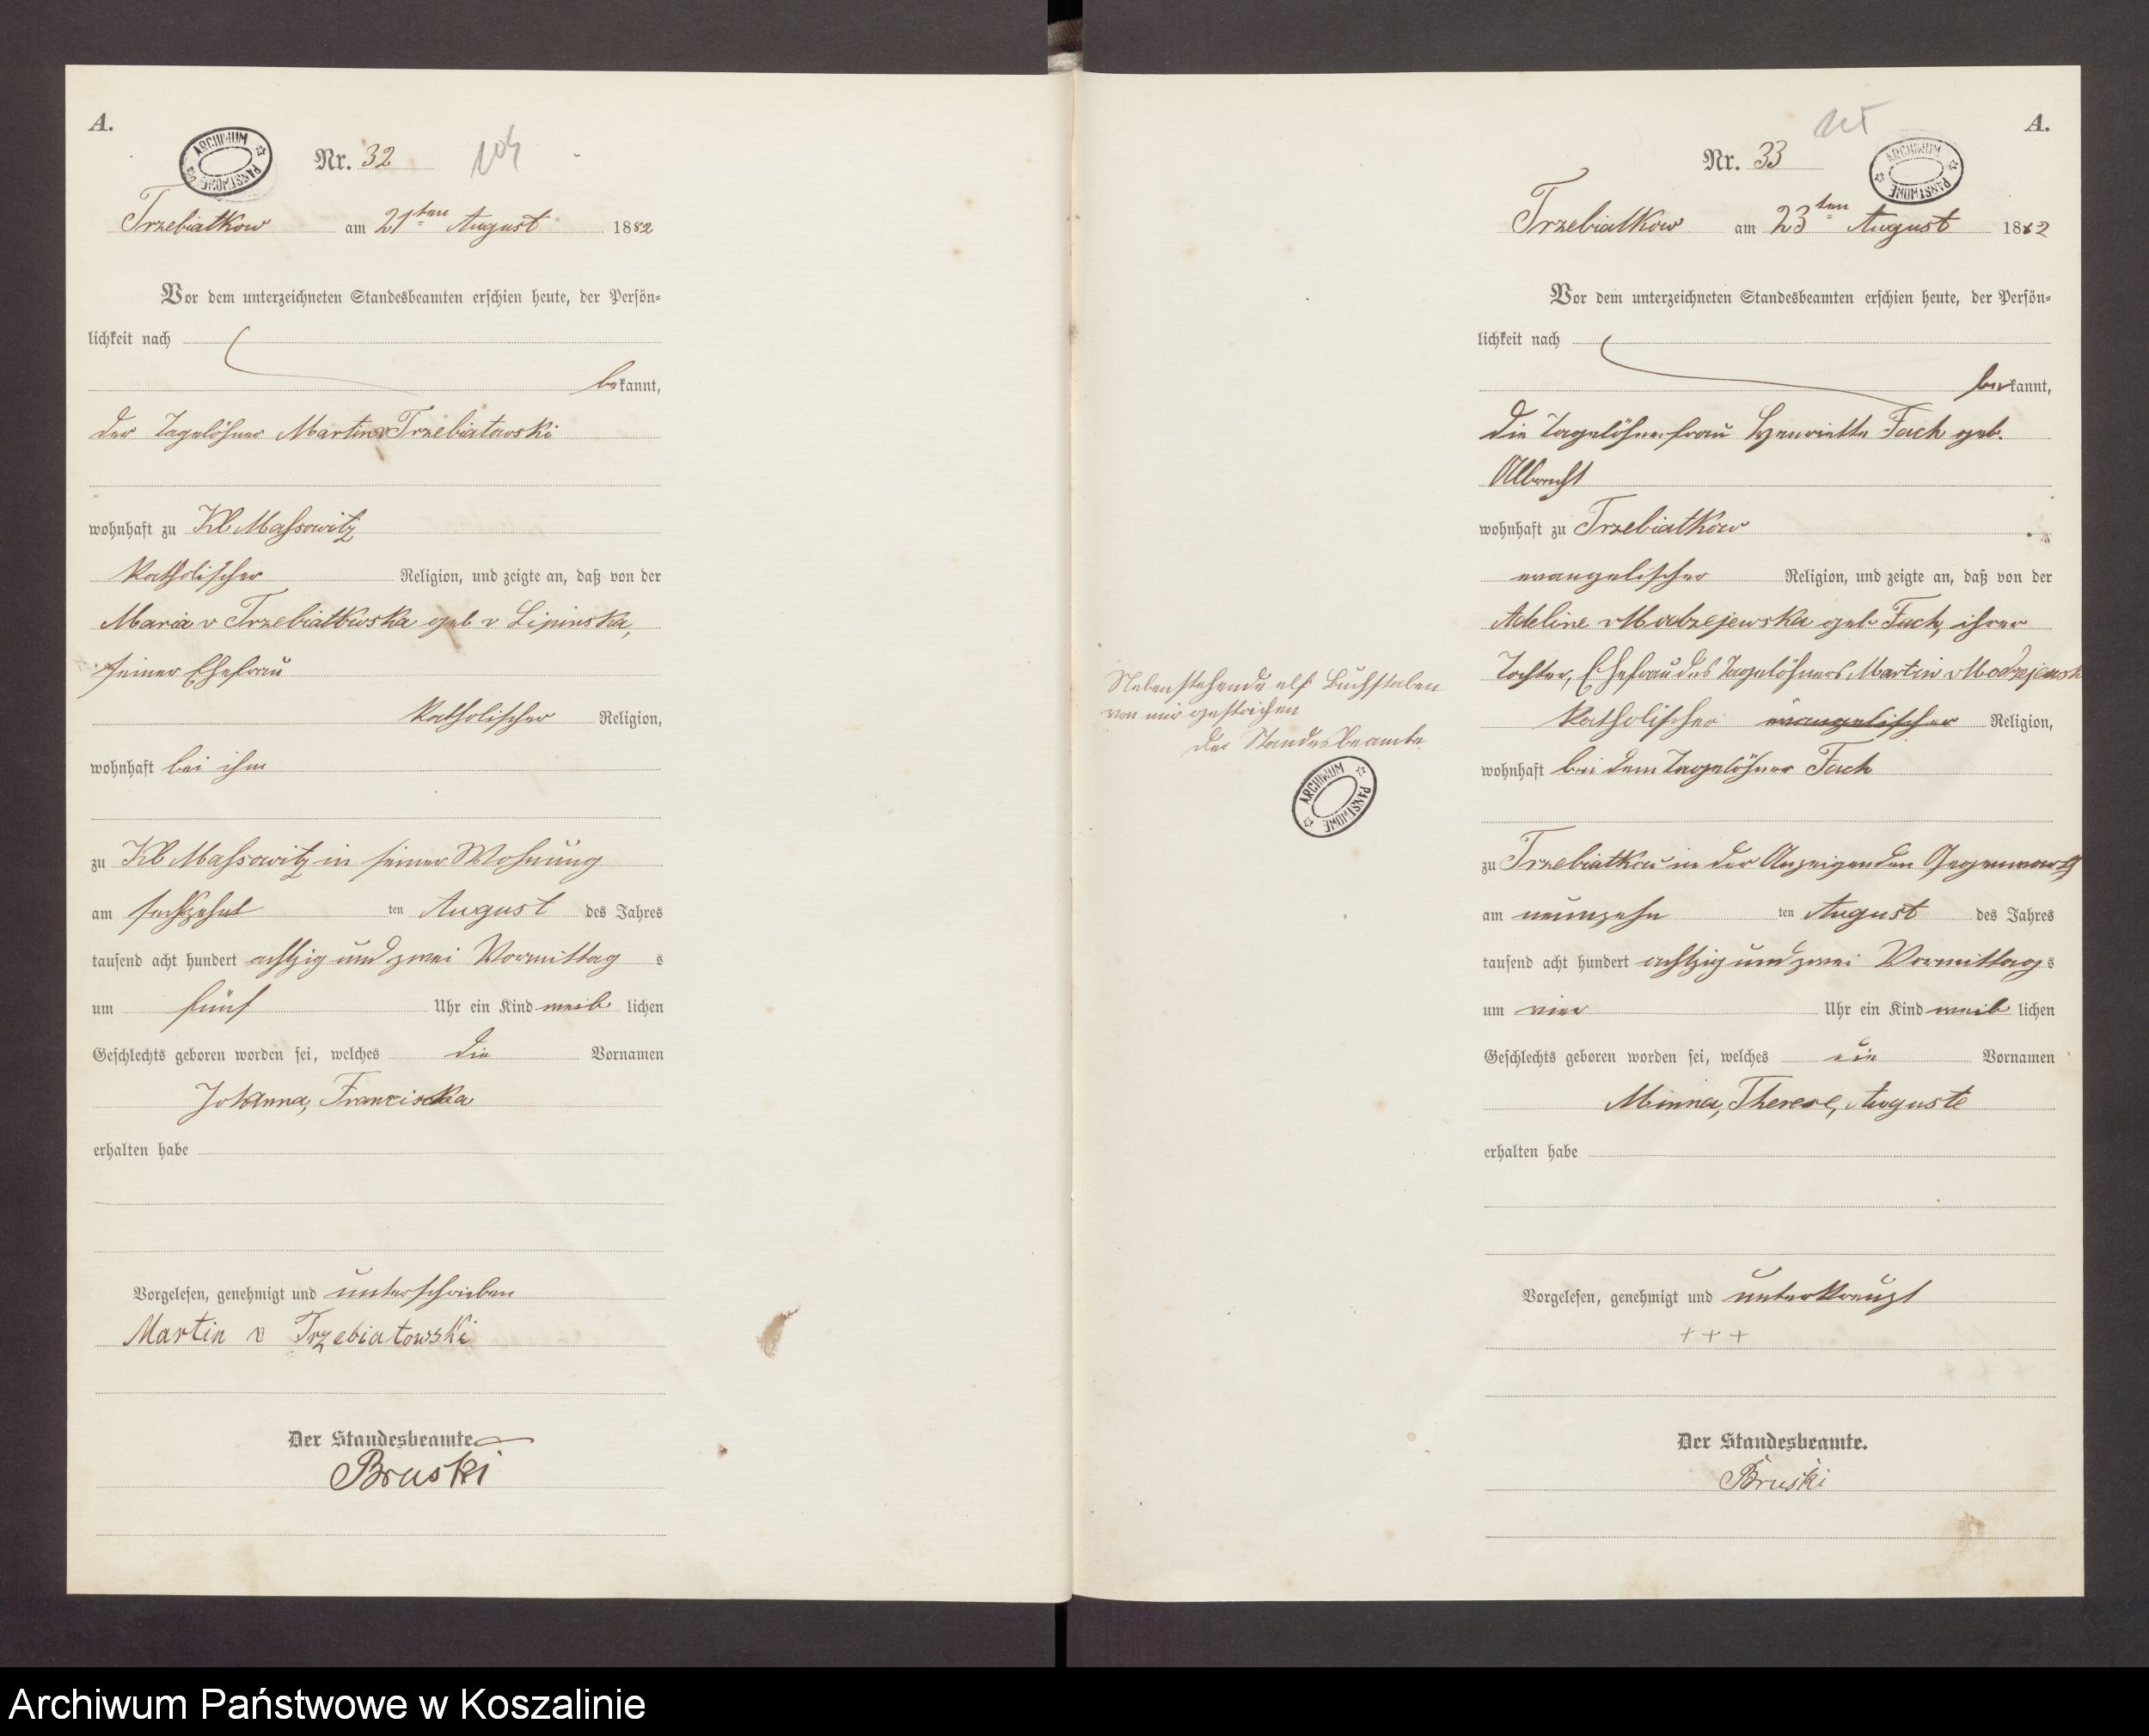 A.
ARCHIWUM PAŃSTWOWE
Nr. 32
104
Trzebiatkow am 21ten August 1882
Vor dem unterzeichneten Standesbeamten erschien heute, der Persön-
lichkeit nach
bekannt,
der Tagelöhner Martin v Trzebiatowski
wohnhaft zu Kl Massowitz
katholischer Religion, und zeigte an, daß von der
Maria v Trzebiatkowska geb v Lipinska,
seiner Ehefrau
katholischer Religion,
wohnhaft bei ihm
zu Kl Massowitz in seiner Wohnung
am sechszehnt ten August des Jahres
tausend acht hundert achtzig und zwei Vormittag s
um fünf Uhr ein Kind weib lichen
Geschlechts geboren worden sei, welches die Vornamen
Johanna, Franciska
erhalten habe
Vorgelesen, genehmigt und unterschrieben
Martin v Trzebiatowski
Der Standesbeamte
Bruski
Nebenstehende elf Buchstaben
von mir gestrichen
Der Standesbeamte
ARCHIWUM PAŃSTWOWE
A.
ARCHIWUM PAŃSTWOWE
Nr. 33
Trzebiatkow am 23ten August 1882
Vor dem unterzeichneten Standesbeamten erschien heute, der Persön-
lichkeit nach
bekannt,
die Tagelöhnerfrau Henriette Fach geb.
Albrecht
wohnhaft zu Trzebiatkow
evangelischer Religion, und zeigte an, daß von der
Adeline v Modrzejewska geb Fach, ihrer
Tochter, Ehefrau des Tagelöhners Martin v Modrzejewsk
katholischer evangelischer Religion,
wohnhaft bei dem Tagelöhner Fach
zu Trzebiatkow in der Anzeigenden Gegenwart
am neunzehn ten August des Jahres
tausend acht hundert achtzig und zwei Vormittag s
um vier Uhr ein Kind weib lichen
Geschlechts geboren worden sei, welches die Vornamen
Minna, Therese, Auguste
erhalten habe
Vorgelesen, genehmigt und unterkreuzt
+ + +
Der Standesbeamte.
Bruski
Archiwum Państwowe w Koszalinie